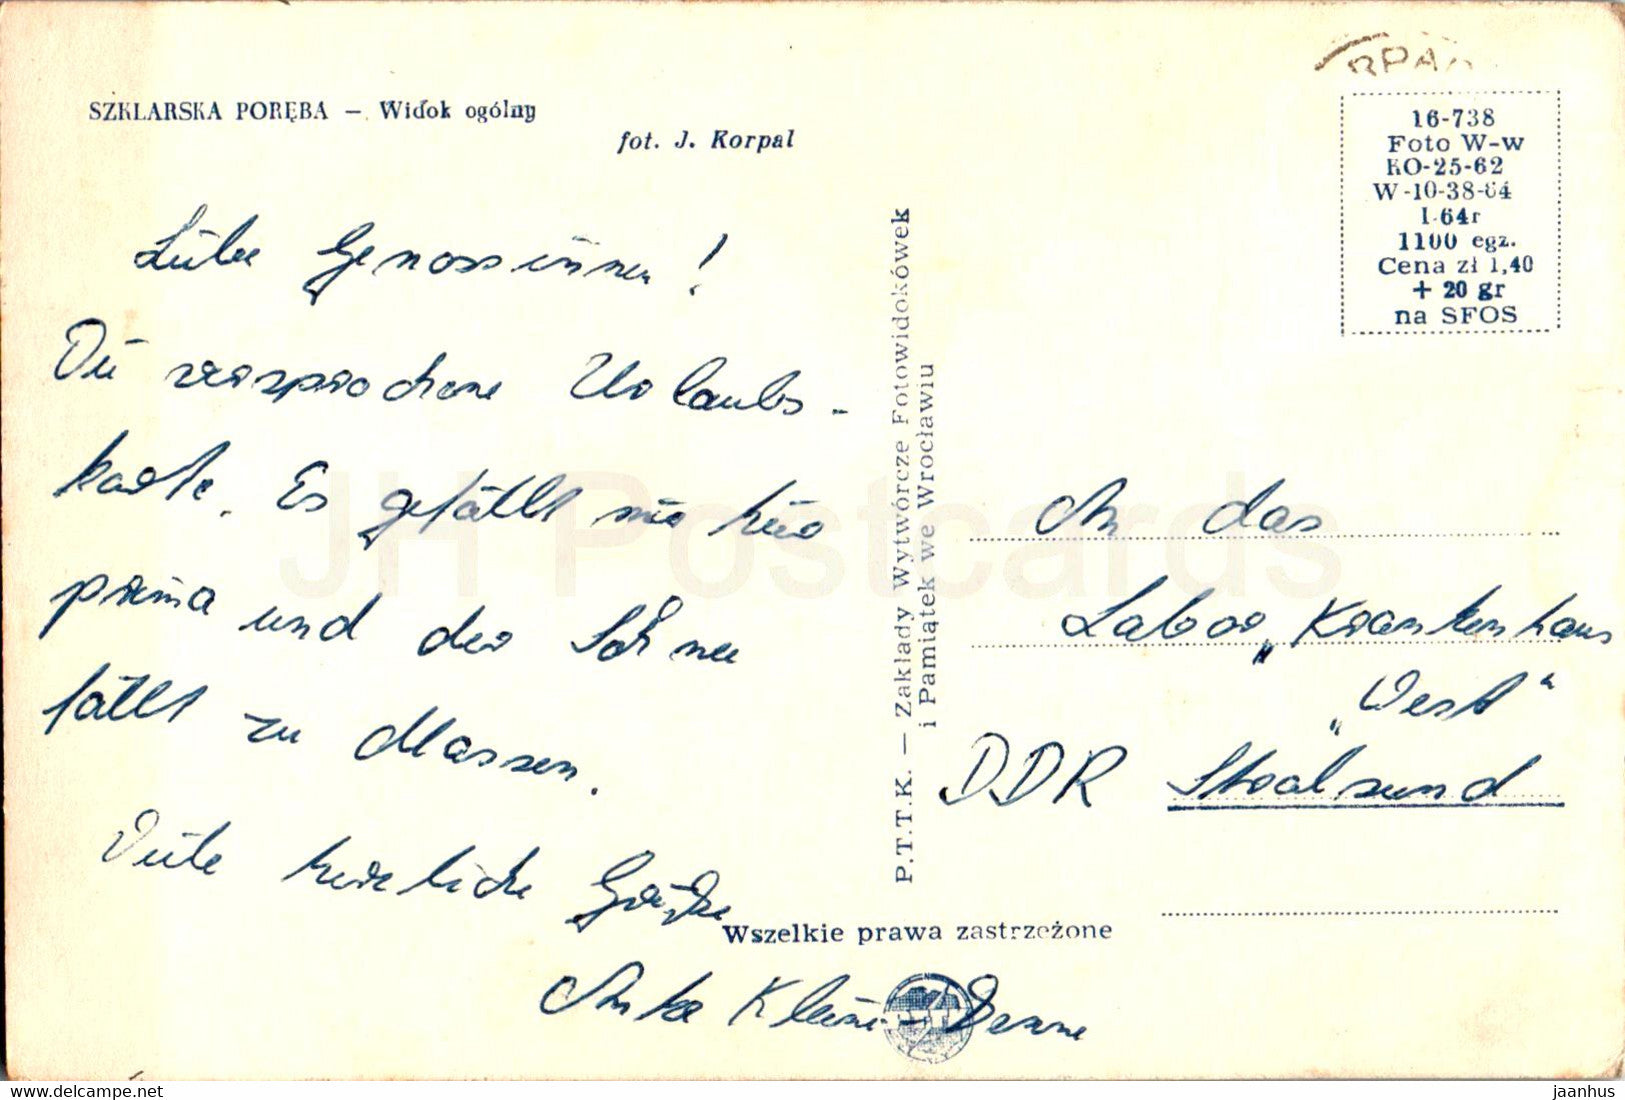 SZKLARSKA PORĘBA — Widok ogólny
fot. J. Korpal
Liebe Genossinnen!
Die versprochene Urlaubs-
karte. Es gefällt mir hier
prima und der Schnee
fällt zu Massen.
Viele herzliche Grüße
Anka
P.T.T.K. — Zakłady Wytwórcze Fotowidokówek
i Pamiątek we Wrocławiu
Wszelkie prawa zastrzeżone
16-738
Foto W-w
KO-25-62
W-10-38-64
I-64r
1100 egz.
Cena zł 1,40
+ 20 gr
na SFOS
An das
Labor „Krankenhaus
„West“
DDR Stralsund
JH Postcards
www.delcampe.net
jaanhus